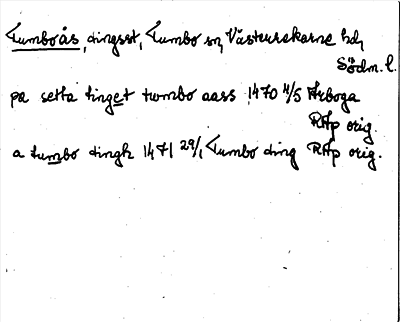 Tumboås, dingsst, Tumbo sn, Västerrekarne hd,
Södm. l.
pa setta tinget twmbo aass 1470 4/5 Arboga
RAp orig.
a tumbo dingh 1471 29/1 Tumbo ding RAp orig.